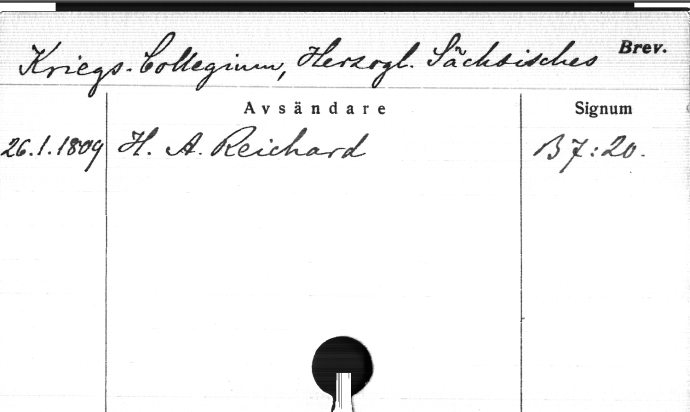 Kriegs-Collegium, Herzogl. Sächsisches Brev.
Avsändare Signum
26.1.1809 H. A. Reichard B 7:20.